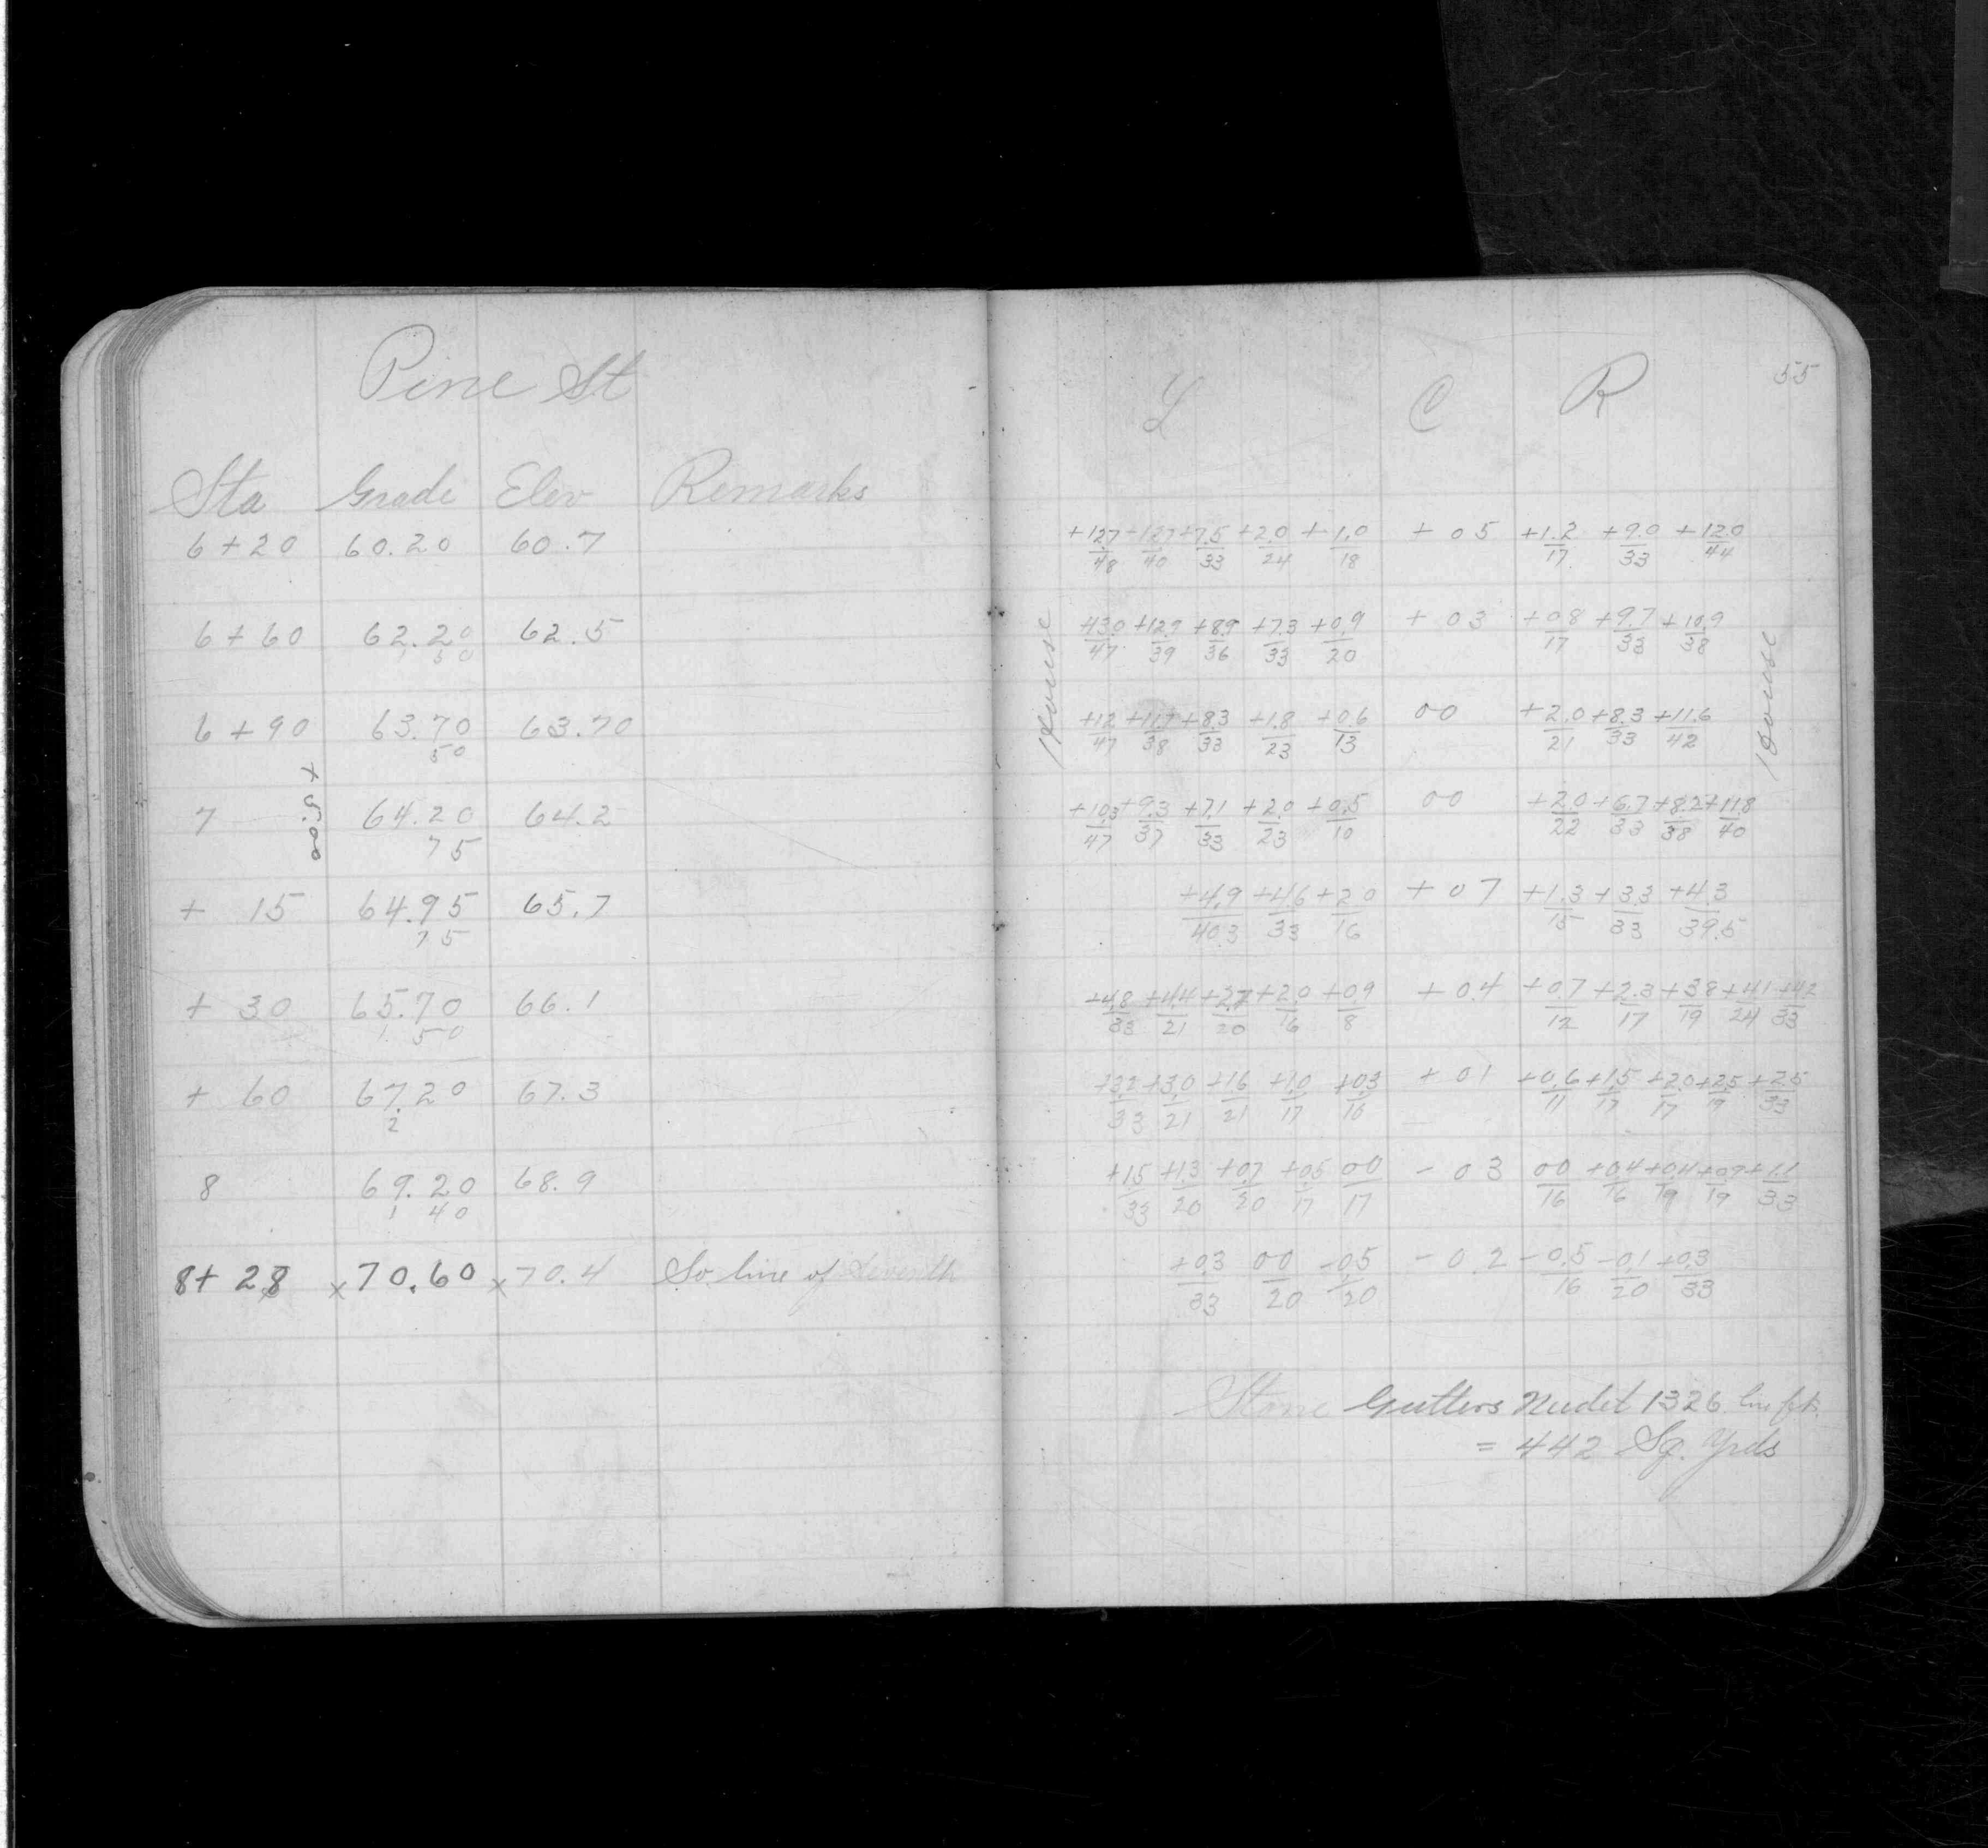 Pine St
Sta Grade Elev Remarks
6+20 60.20 60.7
6+60 62.20 62.5
1 50
6+90 63.70 63.70
50
+ 5.00
7 64.20 64.2
75
+ 15 64.95 65.7
75
+ 30 65.70 66.1
1 50
+ 60 67.20 67.3
2
8 69.20 68.9
1 40
8+28 x 70.60 x 70.4 So. line of
55
L C R
+12.7/48 +12.7/40 +7.5/33 +2.0/24 +1.0/18 +05 +1.2/17 +9.0/33 +12.0/44
House
+12.9/39 +8.9/36 +7.3/33 +0.9/20 +03 +0.8/17 +9.7/33 +10.9/38
House
+12/47 +11.7/38 +8.3/33 +1.8/23 +0.6/13 00 +2.0/21 +8.3/33 +11.6/42
+10.3/47 +9.3/37 +7.1/33 +2.0/23 +0.5/10 00 +2.0/22 +6.7/33 +8.2/38 +11.8/40
+4.9/40.3 +4.6/33 +2.0/16 +07 +1.3/15 +3.3/33 +4.3/39.5
+4.8/33 +4.4/21 +2.7/20 +2.0/16 +0.9/8 +0.4 +0.7/12 +2.3/17 +3.8/19 +4.1/24 +4.2/33
+3.2/33 +3.0/21 +1.6/21 +1.0/17 +0.3/16 +01 +0.6/11 +1.5/17 +2.0/17 +2.5/19 +2.5/33
+1.5/33 +1.3/20 +0.7/20 +0.5/17 00/17 -03 00/16 +0.4/16 +0.4/19 +0.9/19 +1.1/33
+0.3/33 00/20 -0.5/20 -0.2 -0.5/16 -0.1/20 +0.3/33
Stone Gutters Needet 1326 lin fts.
= 442 Sq. Yrds